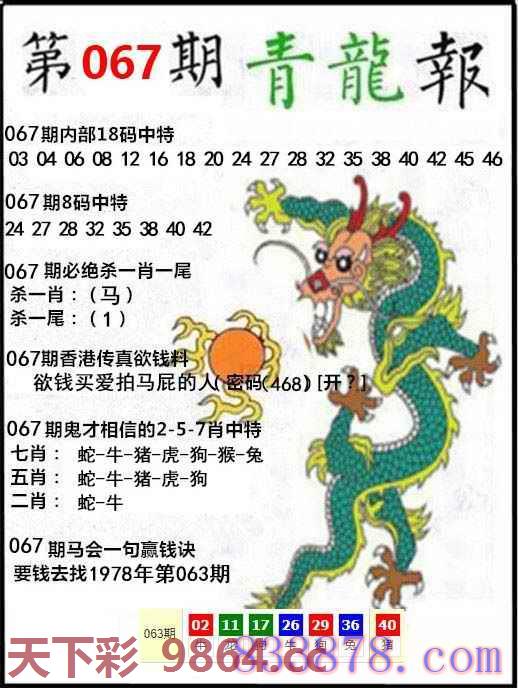 第067期青龍報
067期内部18码中特
03 04 06 08 12 16 18 20 24 27 28 32 35 38 40 42 45 46
067期8码中特
24 27 28 32 35 38 40 42
067期必绝杀一肖一尾
杀一肖：（马）
杀一尾：（1）
067期香港传真欲钱料
欲钱买爱拍马屁的人（密码(468）[开？]
067期鬼才相信的2-5-7肖中特
七肖： 蛇-牛-猪-虎-狗-猴-兔
五肖： 蛇-牛-猪-虎-狗
二肖： 蛇-牛
067期马会一句赢钱诀
要钱去找1978年第063期
063期 02 11 17 26 29 36 40
牛 狗 兔 猪
天下彩 9864.cc
838878.com